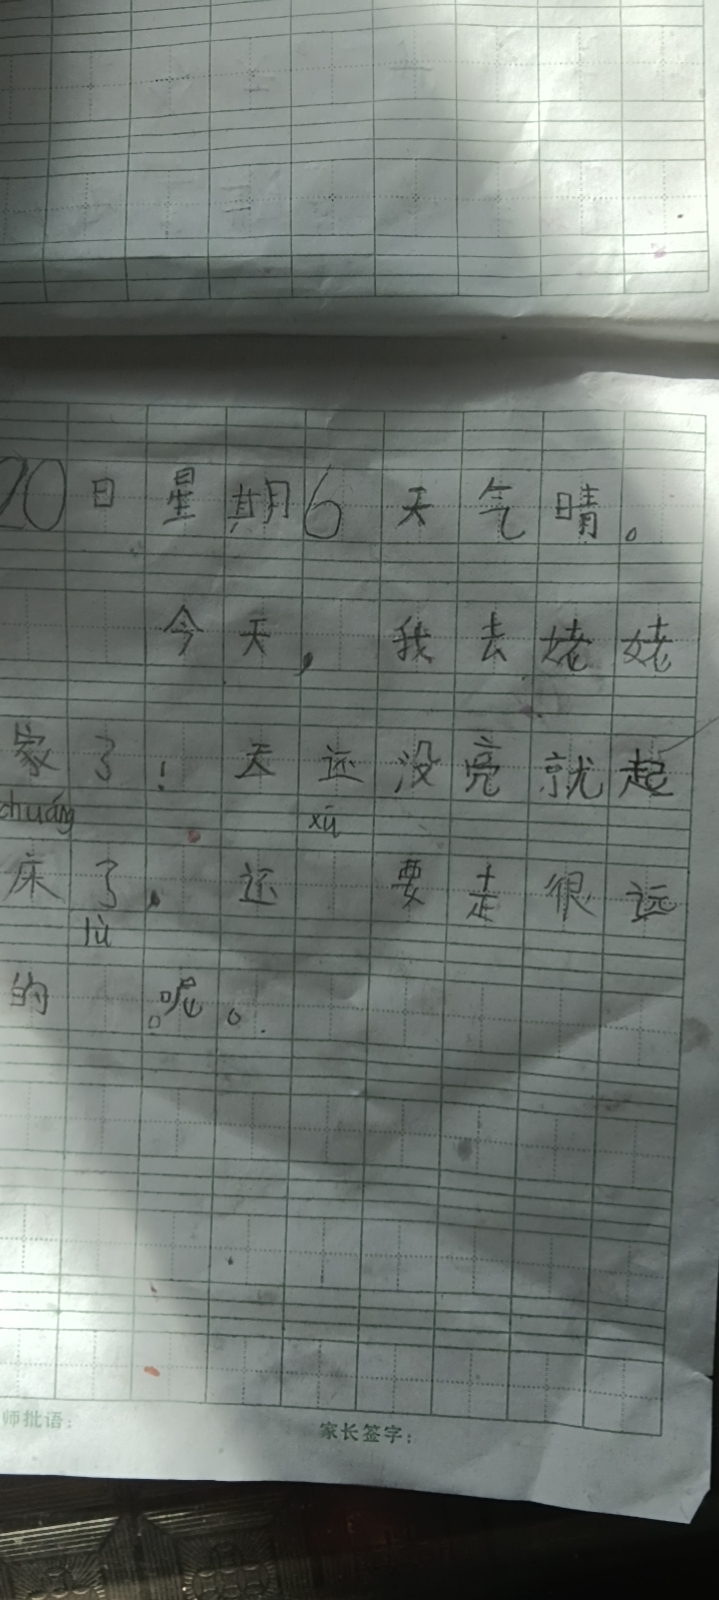 20日星期6天气晴。
今天，我去姥姥
家了！天还没亮就起
chuáng xū
床了，还 要走很远
lù
的 呢。
师批语：
家长签字：